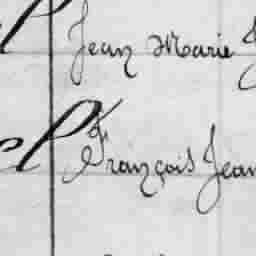 Jean Marie
François Jean